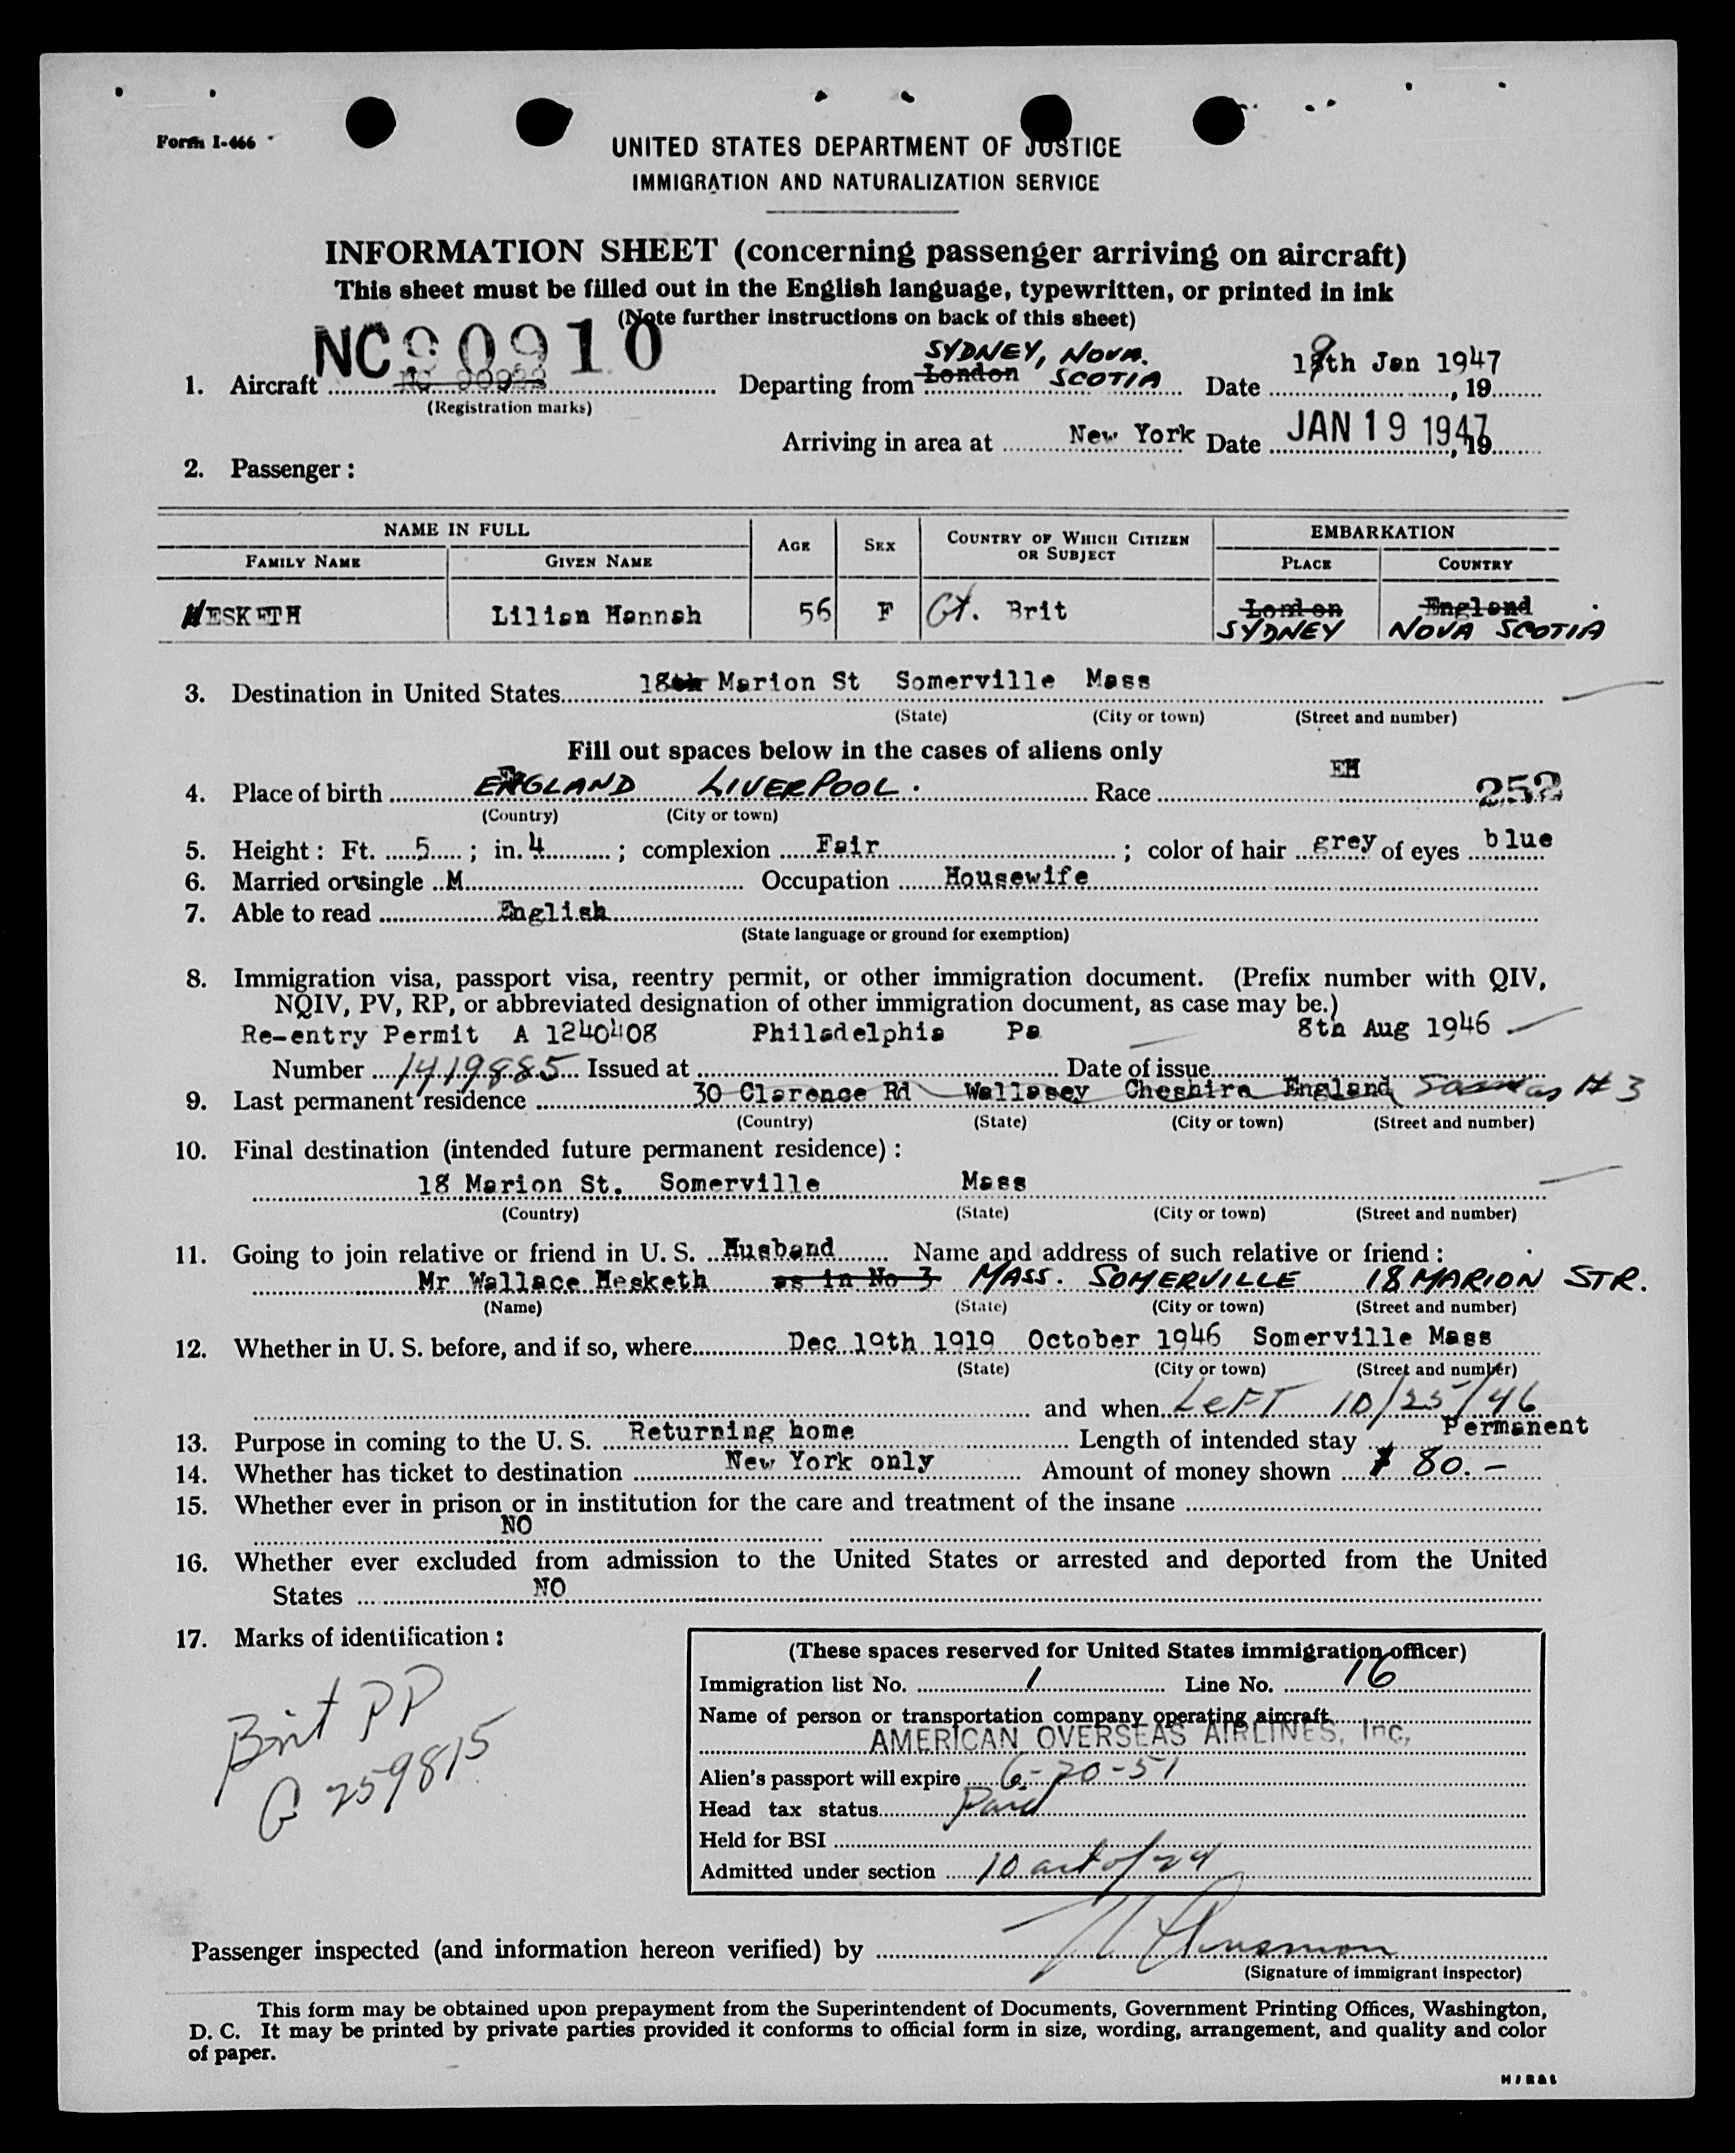 Form I-466
UNITED STATES DEPARTMENT OF JUSTICE
IMMIGRATION AND NATURALIZATION SERVICE
INFORMATION SHEET (concerning passenger arriving on aircraft)
This sheet must be filled out in the English language, typewritten, or printed in ink
(Note further instructions on back of this sheet)
NC90910
SYDNEY, NOVA.
1. Aircraft Departing from London SCOTIA Date 19th Jan 1947, 19
(Registration marks)
Arriving in area at New York Date JAN 19 1947, 19
2. Passenger:
NAME IN FULL AGE SEX COUNTRY OF WHICH CITIZEN OR SUBJECT EMBARKATION
FAMILY NAME GIVEN NAME PLACE COUNTRY
HESKETH Lilian Hannah 56 F Gt. Brit London England
SYDNEY NOVA SCOTIA
3. Destination in United States 18th Marion St Somerville Mass
(State) (City or town) (Street and number)
Fill out spaces below in the cases of aliens only
4. Place of birth ENGLAND LIVERPOOL. Race EH 252
(Country) (City or town)
5. Height: Ft. 5; in. 4; complexion Fair; color of hair grey of eyes blue
6. Married or single M Occupation Housewife
7. Able to read English
(State language or ground for exemption)
8. Immigration visa, passport visa, reentry permit, or other immigration document. (Prefix number with QIV,
NQIV, PV, RP, or abbreviated designation of other immigration document, as case may be.)
Re-entry Permit A 1240408 Philadelphia Pa 8th Aug 1946
Number 1419885 Issued at Date of issue
9. Last permanent residence 30 Clarence Rd Wallasey Cheshire England Same as # 3
(Country) (State) (City or town) (Street and number)
10. Final destination (intended future permanent residence):
18 Marion St. Somerville Mass
(Country) (State) (City or town) (Street and number)
11. Going to join relative or friend in U. S. Husband Name and address of such relative or friend:
Mr Wallace Hesketh as in No 3 MASS. SOMERVILLE 18 MARION STR.
(Name) (State) (City or town) (Street and number)
12. Whether in U. S. before, and if so, where Dec 19th 1919 October 1946 Somerville Mass
(State) (City or town) (Street and number)
and when LEFT 10/25/46
13. Purpose in coming to the U. S. Returning home Length of intended stay Permanent
14. Whether has ticket to destination New York only Amount of money shown $ 80.-
15. Whether ever in prison or in institution for the care and treatment of the insane
NO
16. Whether ever excluded from admission to the United States or arrested and deported from the United
States NO
17. Marks of identification:
Brit PP
G 259815
(These spaces reserved for United States immigration officer)
Immigration list No. 1 Line No. 16
Name of person or transportation company operating aircraft
AMERICAN OVERSEAS AIRLINES, Inc.
Alien's passport will expire 6-20-51
Head tax status Paid
Held for BSI
Admitted under section 10 act of 24
Passenger inspected (and information hereon verified) by
(Signature of immigrant inspector)
This form may be obtained upon prepayment from the Superintendent of Documents, Government Printing Offices, Washington,
D. C. It may be printed by private parties provided it conforms to official form in size, wording, arrangement, and quality and color
of paper.